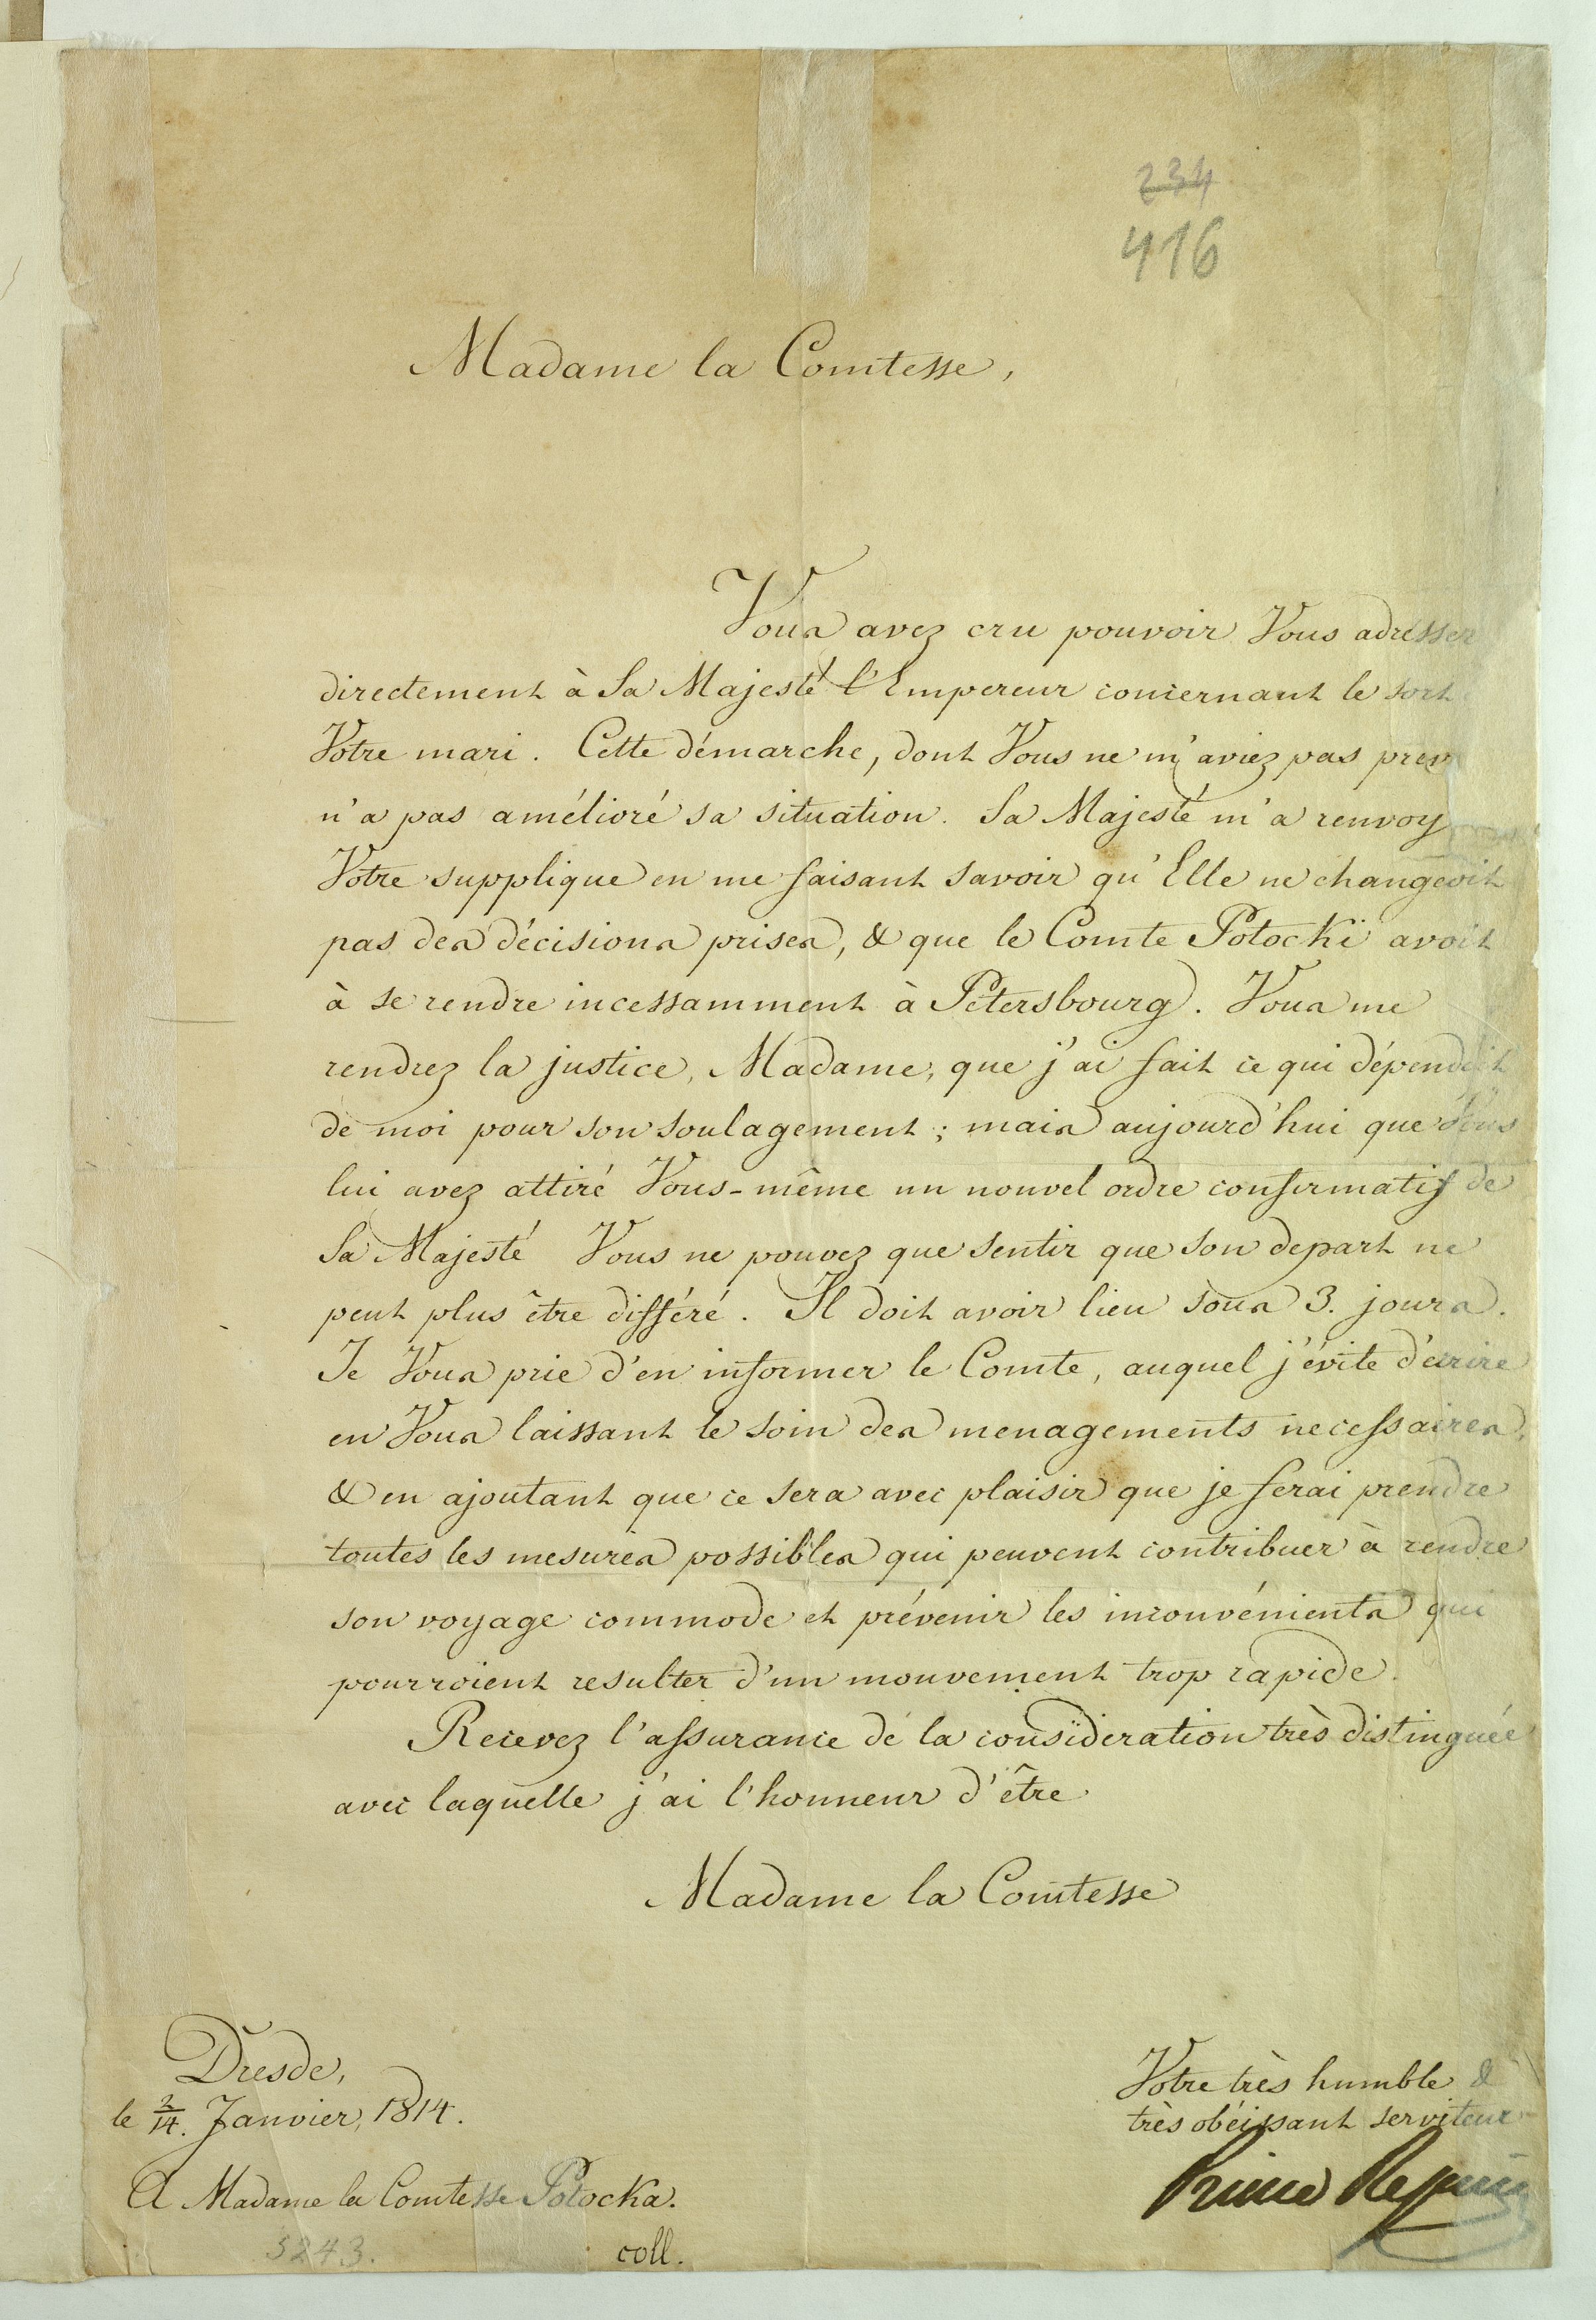 234
416
Madame la Comtesse,
Vous avez cru pouvoir Vous adresser
directement à Sa Majesté l'Empereur concernant le sort
Votre mari. Cette démarche, dont Vous ne m'aviez pas prev
n'a pas amélioré sa situation. Sa Majesté m'a renvoy
Votre supplique en me faisant savoir qu'Elle ne changeoit
pas des décisions prises, & que le Comte Potocki avoit
à se rendre incessamment à Pétersbourg. Vous me
rendrez la justice, Madame, que j'ai fait ce qui dépendoit
de moi pour son soulagement; mais aujourd'hui que Vous
lui avez attiré Vous-même un nouvel ordre confirmatif de
Sa Majesté Vous ne pouvez que sentir que son depart ne
peut plus être différé. Il doit avoir lieu sous 3. jours.
Je Vous prie d'en informer le Comte, auquel j'évite d'écrire
en Vous laissant le soin des menagements necessaires,
& en ajoutant que ce sera avec plaisir que je ferai prendre
toutes les mesures possibles qui peuvent contribuer à rendre
son voyage commode et prévenir les inconvénients qui
pourroient resulter d'un mouvement trop rapide.
Recevez l'assurance de la consideration très distinguée
avec laquelle j'ai l'honneur d'être
Madame la Comtesse
Dresde,
le 2/14. Janvier, 1814.
Votre très humble &
très obéissant serviteur
Prince Repnin
A Madame la Comtesse Potocka.
3243.
coll.